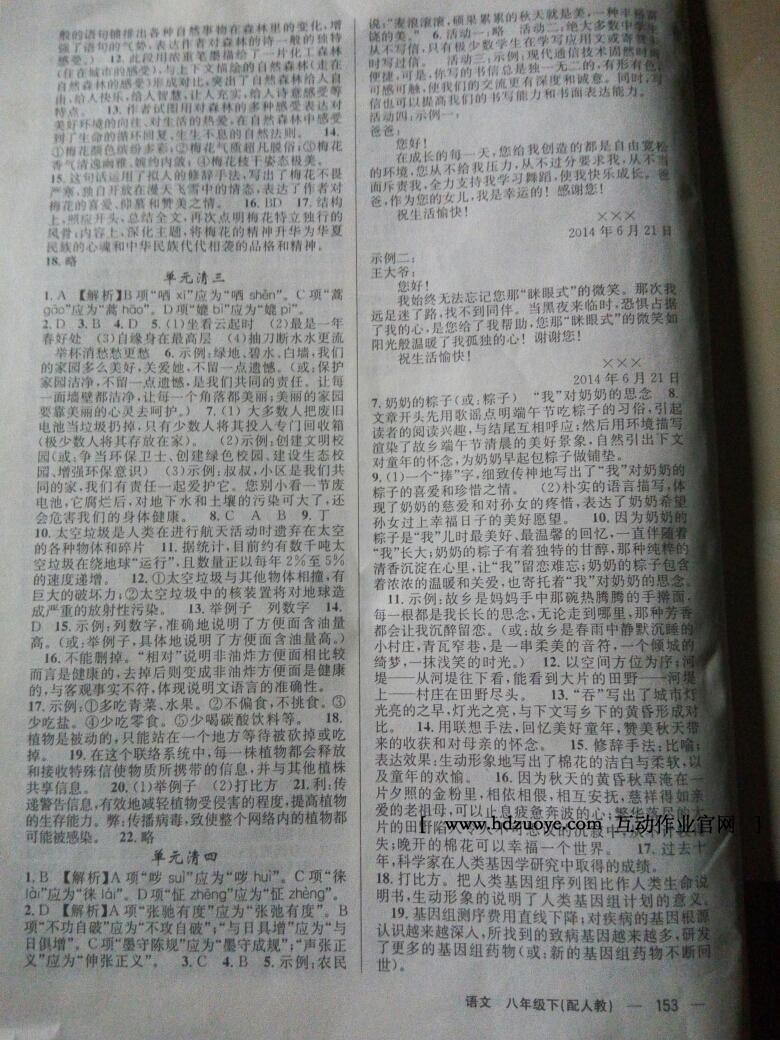 般的语句铺排出各种自然事物在森林里的变化,增
强了语句的气势,表达作者对森林的诗一般的独特
感受。) 12. 此段用浓重笔墨描绘了一片化工森林
(住在城市的感受),与上下文描绘的自然森林(走在
自然森林的感受)形成对比,突出了自然森林给人自
由,给人快乐,给人智慧,让人充实,给人诗意感受等
特点。 13. 作者试图用对森林的多种感受表达对
美好环境的向往、对生活的热爱,在自然森林中感受
到了生命的循环回复、生生不息的自然法则。 14.
①梅花颜色缤纷多彩;②梅花气质超凡脱俗;③梅花
香气清逸幽雅、婉约内敛;④梅花枝干姿态极美。
15. 这句话运用了拟人的修辞手法,写出了梅花不畏
严寒,独自开放在漫天飞雪中的情态,表达了作者对
梅花的喜爱、仰慕和赞美之情。 16. BD 17. 结构
上,照应开头,总结全文,再次点明梅花特立独行的
风骨;内容上,深化主题,将梅花的精神升华为华夏
民族的心魂和中华民族代代相袭的品格和精神。
18. 略
单元清三
1. A 【解析】B项“哂 xì”应为“哂 shěn”。C项“蒿
gāo”应为“蒿 hāo”。D项“媲 bì”应为“媲 pì”。
2. D 3. B 4. D 5. (1)坐看云起时 (2)最是一年
春好处 (3)自缘身在最高层 (4)抽刀断水水更流
举杯消愁愁更愁 6. 示例:绿地、碧水、白墙,我们
的家园多么美好,关爱她,不留一点遗憾。(或:保护
家园洁净,不留一点遗憾,是我们共同的责任。让每
一面墙壁都洁净,让每一个角落都美丽;美丽的家园
要靠美丽的心灵去呵护。) 7. (1)大多数人把废旧
电池当垃圾扔掉,只有少数人将其投入专门回收箱
(极少数人将其存放在家)。 (2)示例:创建文明校
园(或:争当环保卫士、创建绿色校园、建设生态校
园、增强环保意识) (3)示例:叔叔,小区是我们共
同的家,我们有责任一起爱护它。您别小看一节废
电池,它腐烂后,对地下水和土壤的污染可大了,还
会危害我们的身体健康。 8. C A B 9. 丁
10. 太空垃圾是人类在进行航天活动时遗弃在太空
的各种物体和碎片 11. 据统计,目前约有数千吨太
空垃圾在绕地球“运行”,且数量正以每年2%至5%
的速度递增。 12. ①太空垃圾与其他物体相撞,有
巨大的破坏力;②太空垃圾中的核装置将对地球造
成严重的放射性污染。 13. 举例子 列数字 14.
D 15. 示例:列数字,准确地说明了方便面含油量
高。(或:举例子,具体地说明了方便面含油量高。)
16. 不能删掉。“相对”说明非油炸方便面相比较
而言是健康的,去掉后则变成非油炸方便面是健康
的,与客观事实不符,体现说明文语言的准确性。
17. 示例:①多吃青菜、水果。②不偏食,不挑食。③
少吃盐。④少吃零食。⑤少喝碳酸饮料等。 18.
植物是被动的,只能站在一个地方等待被砍掉或吃
掉。 19. 在这个联络系统中,每一株植物都会释放
和接收特殊信使物质所携带的信息,并与其他植株
共享信息。 20. (1)举例子 (2)打比方 21. 利:传
递警告信息,有效地减轻植物受侵害的程度,提高植物
的生存能力。弊:传播病毒,致使整个网络内的植物都
可能被感染。 22. 略
单元清四
1. B 【解析】A项“哕 suì”应为“哕 huì”。C项“徕
lài”应为“徕 lái”。D项“怔 zhēng”应为“怔 zhèng”。
2. D 【解析】A项“张驰有度”应为“张弛有度”。B
项“不功自破”应为“不攻自破”;“与日具增”应为“与
日俱增”。C项“墨守陈规”应为“墨守成规”;“声张正
义”应为“伸张正义”。 3. C 4. B 5. 示例:农民
说:“麦浪滚滚,硕果累累的秋天就是美,一种丰稔富
饶的美。” 6. 活动一:略 活动二:绝大多数中学生
从不写信,只有极少数学生在学习应用文或寄赞
时写过信。 活动三:示例:现代通信技术固然时尚
便捷,可是,你写的书信总是独一无二的,有形有色,
可感可触,使我们的交流更有深度和诚意。同时,写
信也可以提高我们的书写能力和书面表达能力。
活动四:示例一:
爸爸:
您好!
在成长的每一天,您给我创造的都是自由宽松
的环境,您从不给我压力,从不过分要求我,从不当
面斥责我,全力支持我学习舞蹈,使我快乐成长。爸
爸,作为您的女儿,我是幸运的!感谢您!
祝生活愉快!
×××
2014年6月21日
示例二:
王大爷:
您好!
我始终无法忘记您那“眯眼式”的微笑。那次我
远足迷了路,找不到同伴。当黑夜来临时,恐惧占据
了我的心,是您给了我帮助,您那“眯眼式”的微笑如
阳光般温暖了我孤独的心!谢谢您!
祝生活愉快!
×××
2014年6月21日
7. 奶奶的粽子(或:粽子) “我”对奶奶的思念 8.
文章开头先用歌谣点明端午节吃粽子的习俗,引起
读者的阅读兴趣,与结尾互相呼应;然后用环境描写
渲染了故乡端午节清晨的美好景象,自然引出下文
对童年的怀念,为奶奶早起包粽子做铺垫。
9. (1)一个“捧”字,细致传神地写出了“我”对奶奶的
粽子的喜爱和珍惜之情。 (2)朴实的语言描写,体
现了奶奶的慈爱和对孙女的疼惜,表达了奶奶希望
孙女过上幸福日子的美好愿望。 10. 因为奶奶的
粽子是“我”儿时最美好、最温馨的回忆,一直伴随着
“我”长大;奶奶的粽子有着独特的甘醇,那种纯粹的
清香沉淀在心里,让“我”留恋难忘;奶奶的粽子包含
着浓浓的温暖和关爱,也寄托着“我”对奶奶的思念。
11. 示例:故乡是妈妈手中那碗热腾腾的手擀面,
每一根都是我长长的思念,无论走到哪里,那种芳香
都会让我沉醉留恋。(或:故乡是春雨中静默沉睡的
小村庄,青瓦窄巷,是一串柔美的音符,一个倾城的
绮梦,一抹浅笑的时光。) 12. 以空间方位为序:河
堤——从河堤往下看,能看到大片的田野——河堤
上——村庄在田野尽头。 13. “吞”写出了城市灯
光亮的之早,灯光之亮,与下文写乡下的黄昏形成对
比。 14. 用联想手法,回忆美好童年,赞美秋天带
来的收获和对母亲的怀念。 15. 修辞手法:比喻;
表达效果:生动形象地写出了棉花的洁白与柔软,以
及童年的欢愉。 16. 因为秋天的黄昏秋草淹在一
片夕照的金粉里,相依相偎,相互安抚,慈祥得如亲
爱的老祖母,可以止息疲惫奔波的心;
片的田野
失;晚开的棉花可以幸福一个世界。 17. 过去十
年,科学家在人类基因学研究中取得的成绩。
18. 打比方。把人类基因组序列图比作人类生命说
明书,生动形象的说明了人类基因组计划的意义。
19. 基因组测序费用直线下降;对疾病的基因根源
认识越来越深入,所找到的致病基因越来越多,研发
了更多的基因组药物(或:新的基因组药物不断问
世)。
[ www.hdzuoye.com 互动作业官网 ]
语文 八年级下(配人教) — 153 —